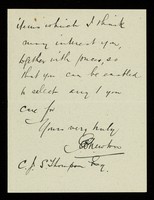 items which I think
may interest you,
together with prices, so
that you can be enabled
to select any you
care for
Yours very truly
C. J. S. Thompson Esq